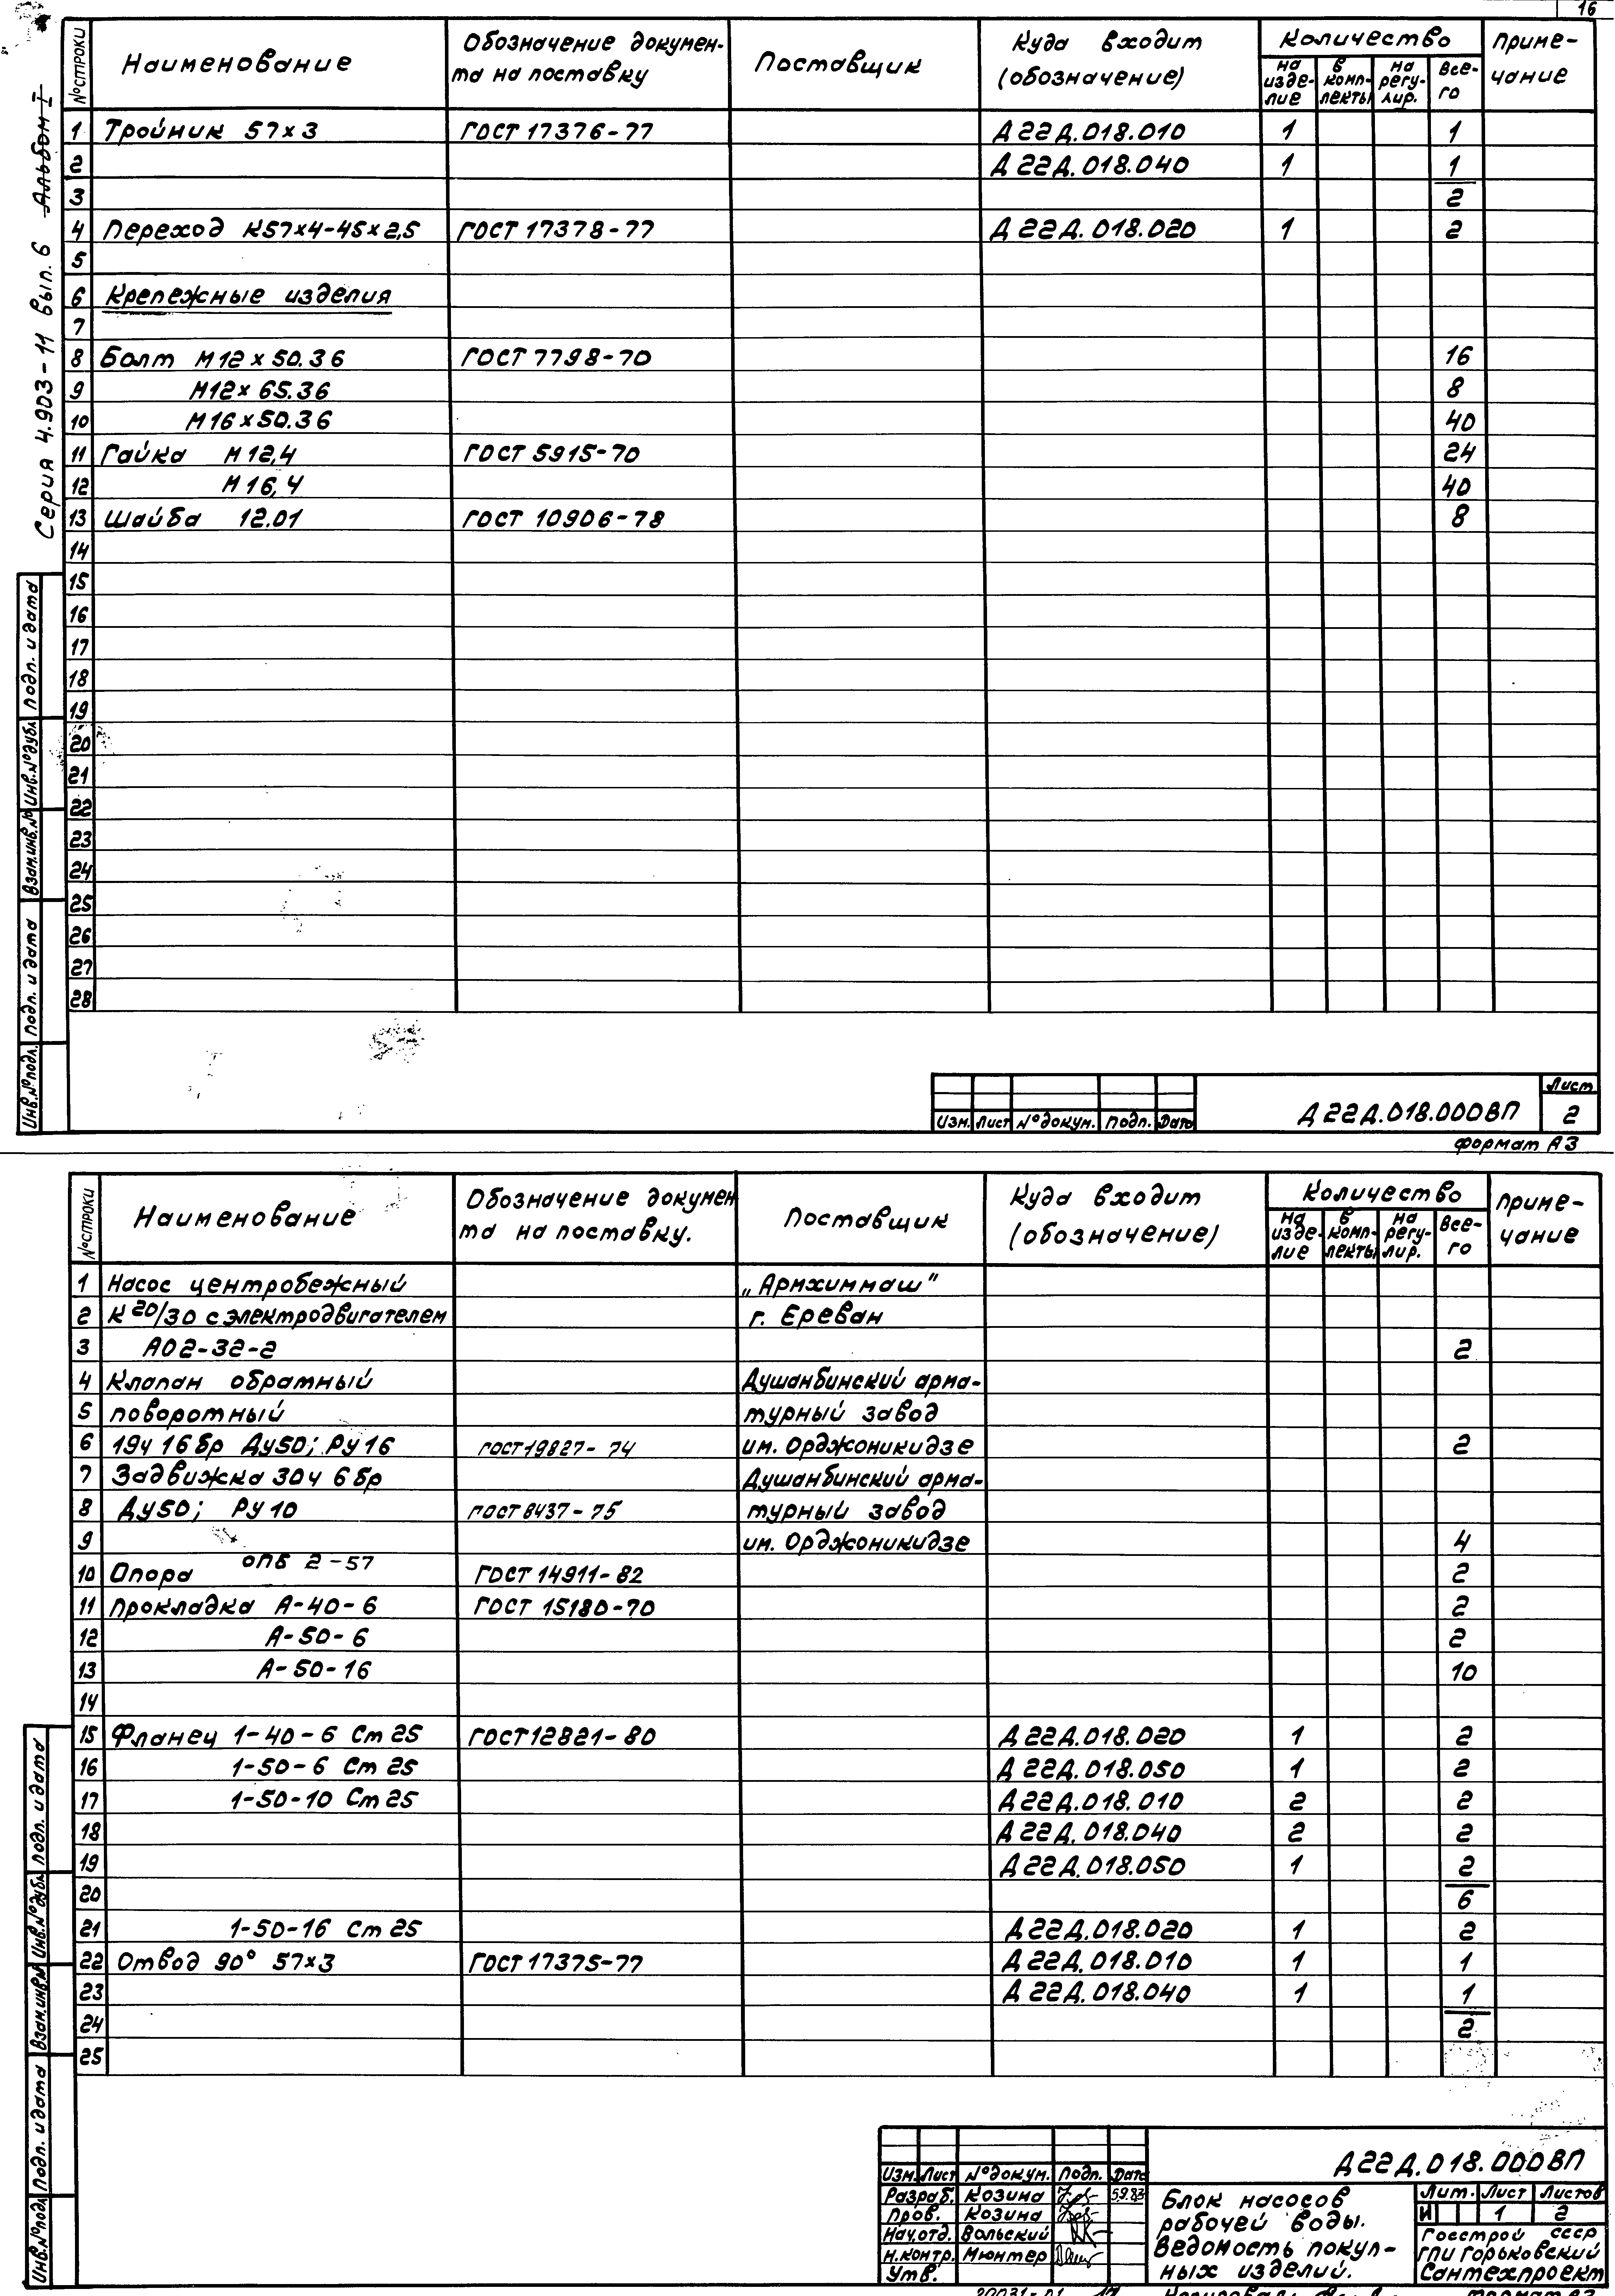 16
Серия 4.903-11 вып. 6 Альбом I
№ строки | Наименование | Обозначение докумен-та на поставку | Поставщик | Куда входит (обозначение) | Количество | Приме-чание
на изде-лие | в комп-лекты | на регу-лир. | Все-го
1 Тройник 57×3 ГОСТ 17376-77 Д22Д.018.010 1 1
2 Д22Д.018.040 1 1
3 2
4 Переход К57×4-45×2,5 ГОСТ 17378-77 Д22Д.018.020 1 2
5
6 Крепежные изделия
7
8 Болт М12×50.36 ГОСТ 7798-70 16
9 М12×65.36 8
10 М16×50.36 40
11 Гайка М12,4 ГОСТ 5915-70 24
12 М16,4 40
13 Шайба 12.01 ГОСТ 10906-78 8
14
15
16
17
18
19
20
21
22
23
24
25
26
27
28
Инв.№подл. Подп. и дата Взам.инв.№ Инв.№дубл. Подп. и дата
Изм. Лист № докум. Подп. Дата
Д22Д.018.000ВП
Лист
2
Формат А3
№ строки | Наименование | Обозначение докумен та на поставку. | Поставщик | Куда входит (обозначение) | Количество | Приме-чание
На изде-лие | в комп-лекты | на регу-лир. | Все-го
1 Насос центробежный „Армхиммаш"
2 К 20/30 с электродвигателем г. Ереван
3 АО2-32-2 2
4 Клапан обратный Душанбинский арма-
5 поворотный турный завод
6 19ч 16бр Ду50; Ру16 ГОСТ 19827-74 им. Орджоникидзе 2
7 Задвижка 30ч 6бр Душанбинский арма-
8 Ду50; Ру10 ГОСТ 8437-75 турный завод
9 им. Орджоникидзе 4
10 Опора ОПБ 2-57 ГОСТ 14911-82 2
11 Прокладка А-40-6 ГОСТ 15180-70 2
12 А-50-6 2
13 А-50-16 10
14
15 Фланец 1-40-6 Ст25 ГОСТ 12821-80 Д22Д.018.020 1 2
16 1-50-6 Ст25 Д22Д.018.050 1 2
17 1-50-10 Ст25 Д22Д.018.010 2 2
18 Д22Д.018.040 2 2
19 Д22Д.018.050 1 2
20 6
21 1-50-16 Ст25 Д22Д.018.020 1 2
22 Отвод 90° 57×3 ГОСТ 17375-77 Д22Д.018.010 1 1
23 Д22Д.018.040 1 1
24 2
25
Инв.№подл. Подп. и дата Взам.инв.№ Инв.№дубл. Подп. и дата
Д22Д.018.000ВП
Изм. Лист № докум. Подп. Дата
Разраб. Козина 5.9.83
Пров. Козина
Нач.отд. Вольский
Н.контр. Мюнтер
Утв.
Блок насосов
рабочей воды.
Ведомость покуп-
ных изделий.
Лит. Лист Листов
И 1 2
Госстрой СССР
ГПИ Горьковский
Сантехпроект
20031-01 17